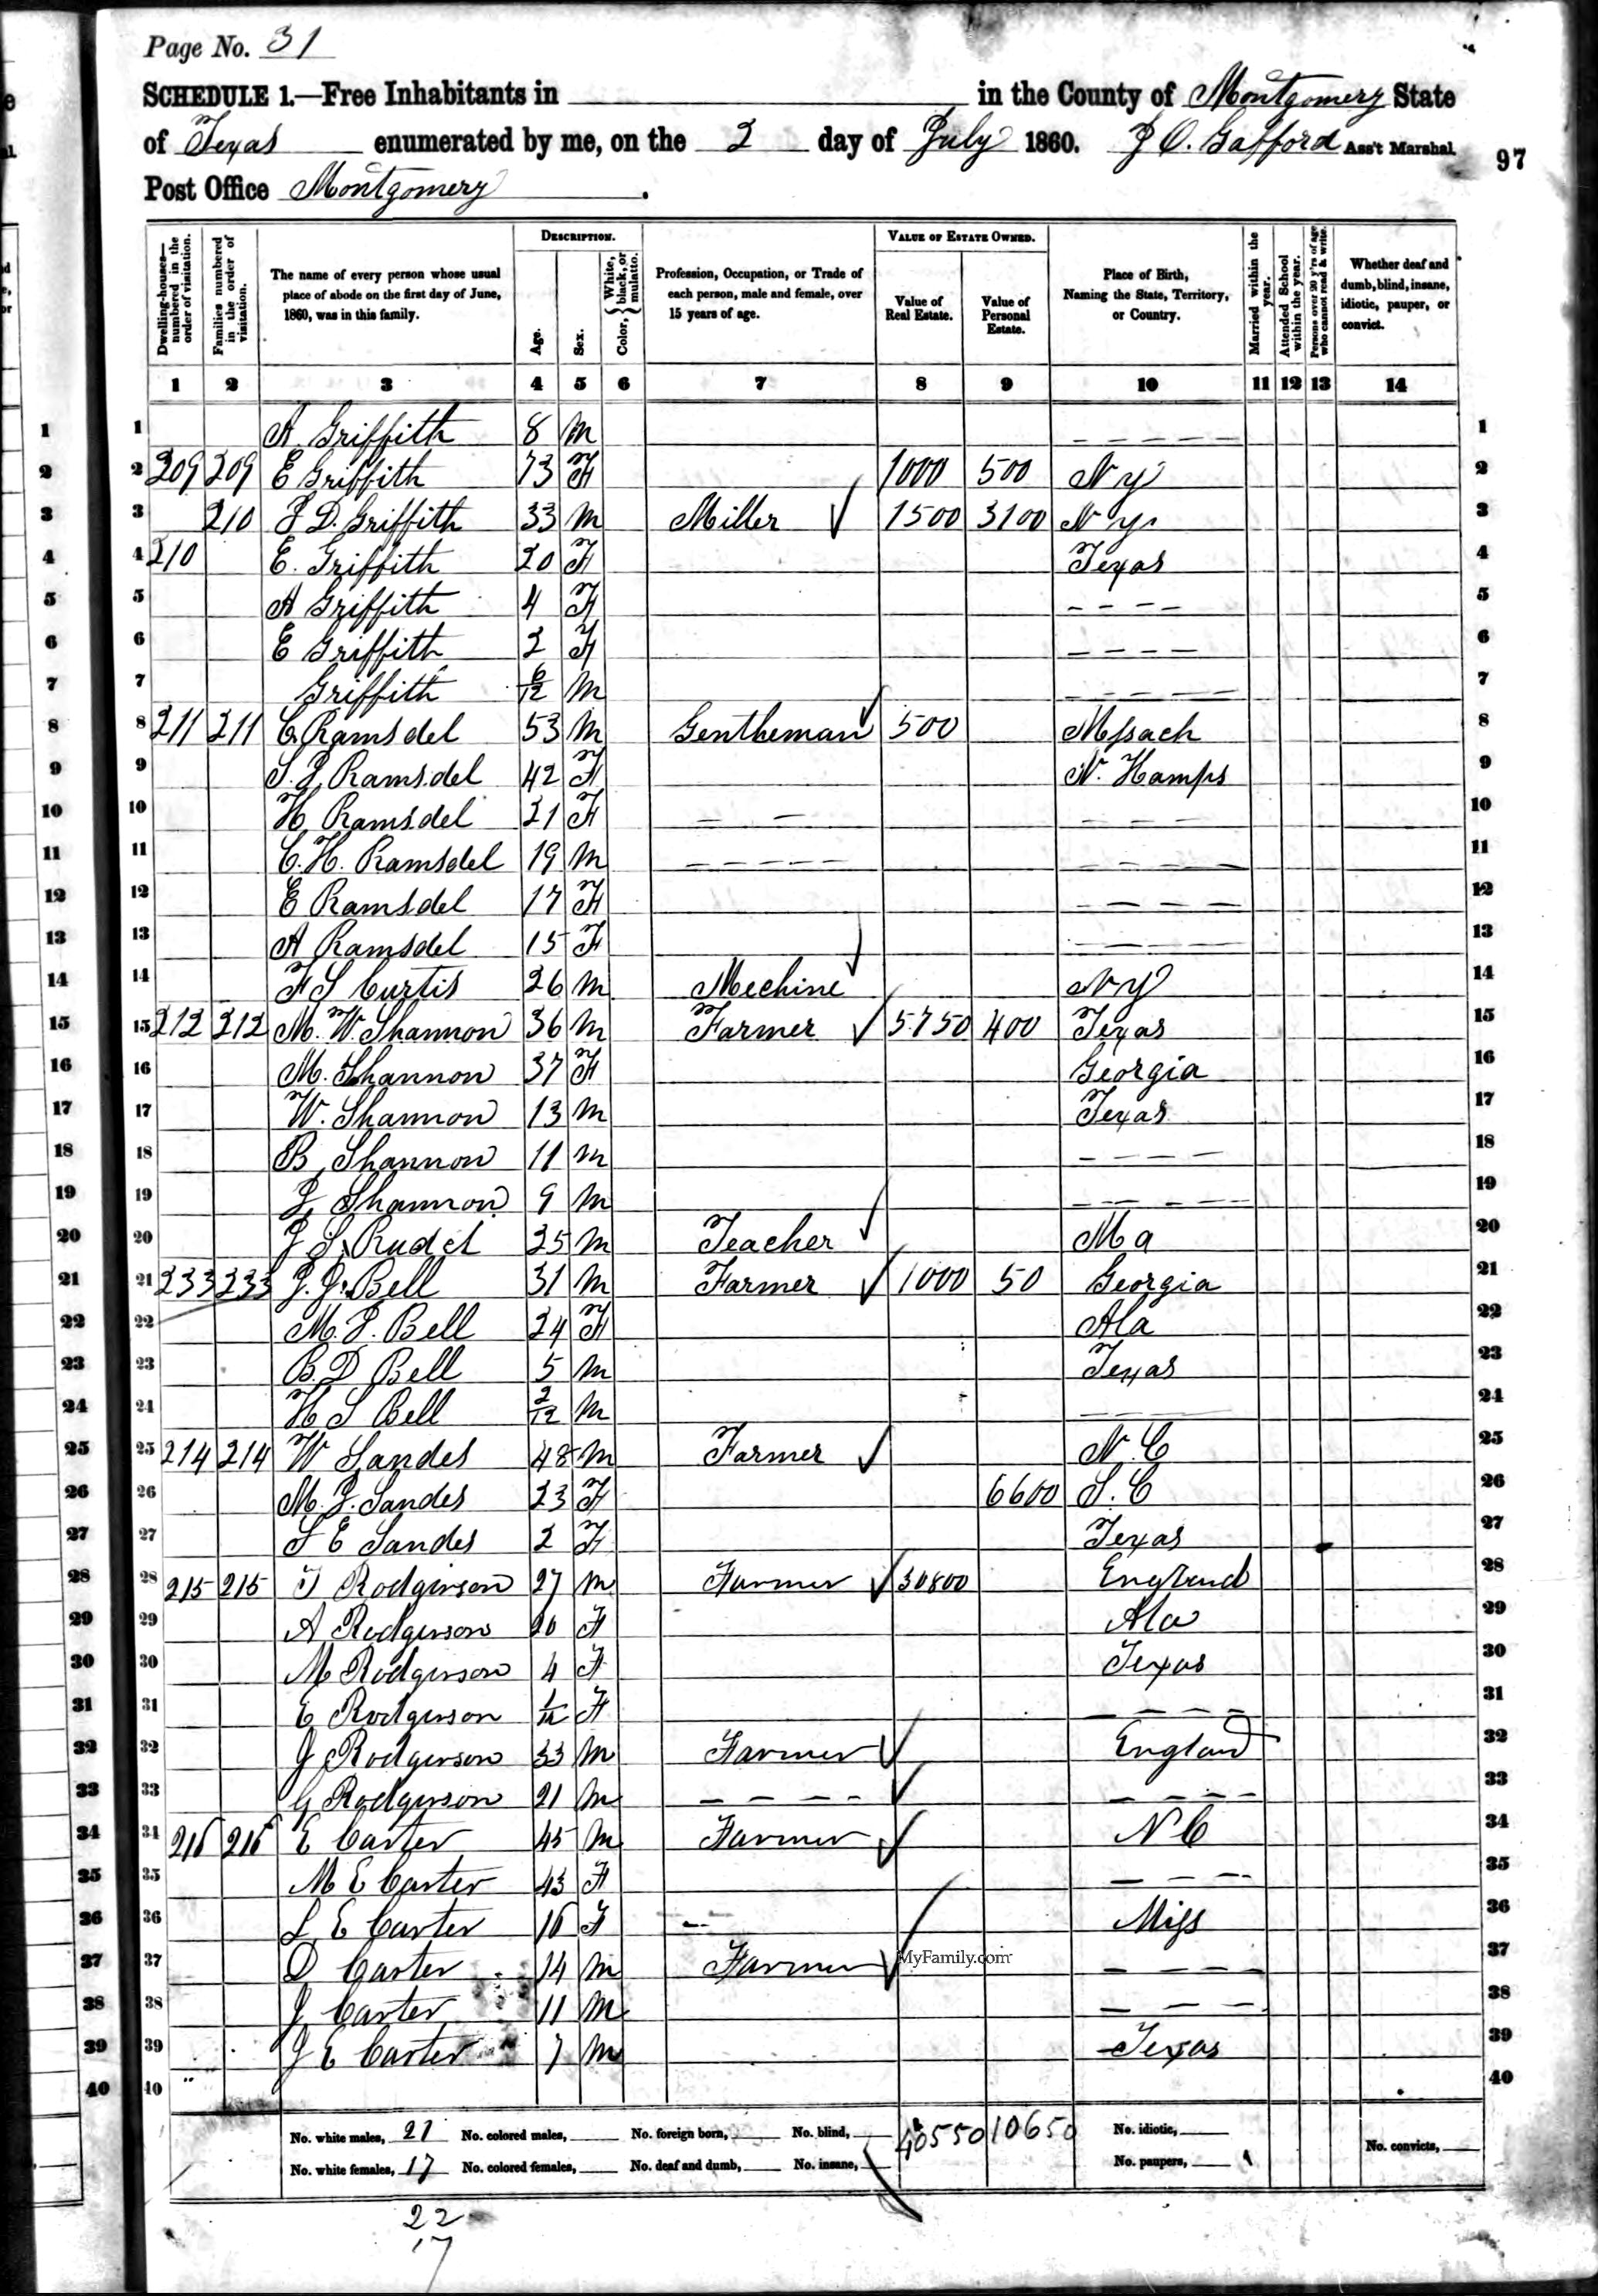 Page No. 31
SCHEDULE 1.—Free Inhabitants in in the County of Montgomery State
of Texas enumerated by me, on the 2 day of July 1860. J O. Gafford Ass't Marshal. 97
Post Office Montgomery .
Dwelling-houses—numbered in the order of visitation. Families numbered in the order of visitation. The name of every person whose usual place of abode on the first day of June, 1860, was in this family. DESCRIPTION. Age. Sex. Color, { White, black, or mulatto. Profession, Occupation, or Trade of each person, male and female, over 15 years of age. VALUE OF ESTATE OWNED. Value of Real Estate. Value of Personal Estate. Place of Birth, Naming the State, Territory, or Country. Married within the year. Attended School within the year. Persons over 20 y'rs of age who cannot read & write. Whether deaf and dumb, blind, insane, idiotic, pauper, or convict.
1 2 3 4 5 6 7 8 9 10 11 12 13 14
1 1 A Griffith 8 M — — — — — 1
2 2 209 209 E Griffith 73 F 1000 500 N Y 2
3 3 210 J D. Griffith 33 M Miller 1500 3100 N Y. 3
4 4 210 E. Griffith 20 F Texas 4
5 5 A Griffith 4 F — — — — 5
6 6 E Griffith 2 F — — — — 6
7 7 Griffith 6/12 M — — — — — 7
8 8 211 211 C Ramsdel 53 M Gentheman 500 Messach 8
9 9 S. J. Ramsdel 42 F N. Hamps 9
10 10 H Ramsdel 21 F — — — — — 10
11 11 C. H. Ramsdel 19 M — — — — — — — — — 11
12 12 E Ramsdel 17 F — — — — 12
13 13 A Ramsdel 15 F — — — — 13
14 14 F S Curtis 26 M Mechine N Y 14
15 15 212 212 M. W. Shannon 36 M Farmer 5750 400 Texas 15
16 16 M. Shannon 37 F Georgia 16
17 17 W. Shannon 13 M Texas 17
18 18 B Shannon 11 M — — — — 18
19 19 J Shannon 9 M — — — — 19
20 20 J S. Rudel 25 M Teacher Ma 20
21 21 233 233 J. J. Bell 31 M Farmer 1000 50 Georgia 21
22 22 M. J. Bell 24 F Ala 22
23 23 B. D Bell 5 M Texas 23
24 24 H S Bell 2/12 M — — — — 24
25 25 214 214 W Sandes 48 M Farmer N. C 25
26 26 M. J. Sandes 23 F 6600 S. C 26
27 27 S E Sandes 2 F Texas 27
28 28 215 215 T Rodgerson 27 M Farmer 30800 England 28
29 29 A Rodgerson 20 F Ala 29
30 30 M Rodgerson 4 F Texas 30
31 31 E Rodgerson 1/12 F — — — — 31
32 32 J Rodgerson 33 M Farmer England 32
33 33 G Rodgerson 21 M — — — — — — — — 33
34 34 216 216 E Carter 45 M Farmer N C 34
35 35 M E Carter 43 F — — — 35
36 36 L E Carter 16 F — — Miss 36
37 37 D Carter 14 M Farmer MyFamily.com — — — — 37
38 38 J Carter 11 M — — — — 38
39 39 J E Carter 7 M Texas 39
40 40 40
No. white males, 21 No. colored males, No. foreign born, No. blind, 40550 10650 No. idiotic,
No. white females, 17 No. colored females, No. deaf and dumb, No. insane, No. paupers, No. convicts,
22
17